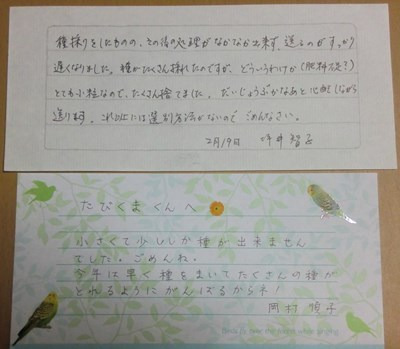 種採りをしたものの、その後の処理がなかなか出来ず、送るのがすっかり
遅くなりました。種がたくさん採れたのですが、どういうわけか(肥料不足?)
とても小粒なので、たくさん捨てました。だいじょうぶかなあと心配しながら
送ります。これ以上には選別方法がないので ごめんなさい。
2月19日
たびくまくんへ
小さくて少ししか種が出来ません
でした。ごめんね。
今年は早く種をまいてたくさんの種が
とれるようにがんばるからネ!
岡村